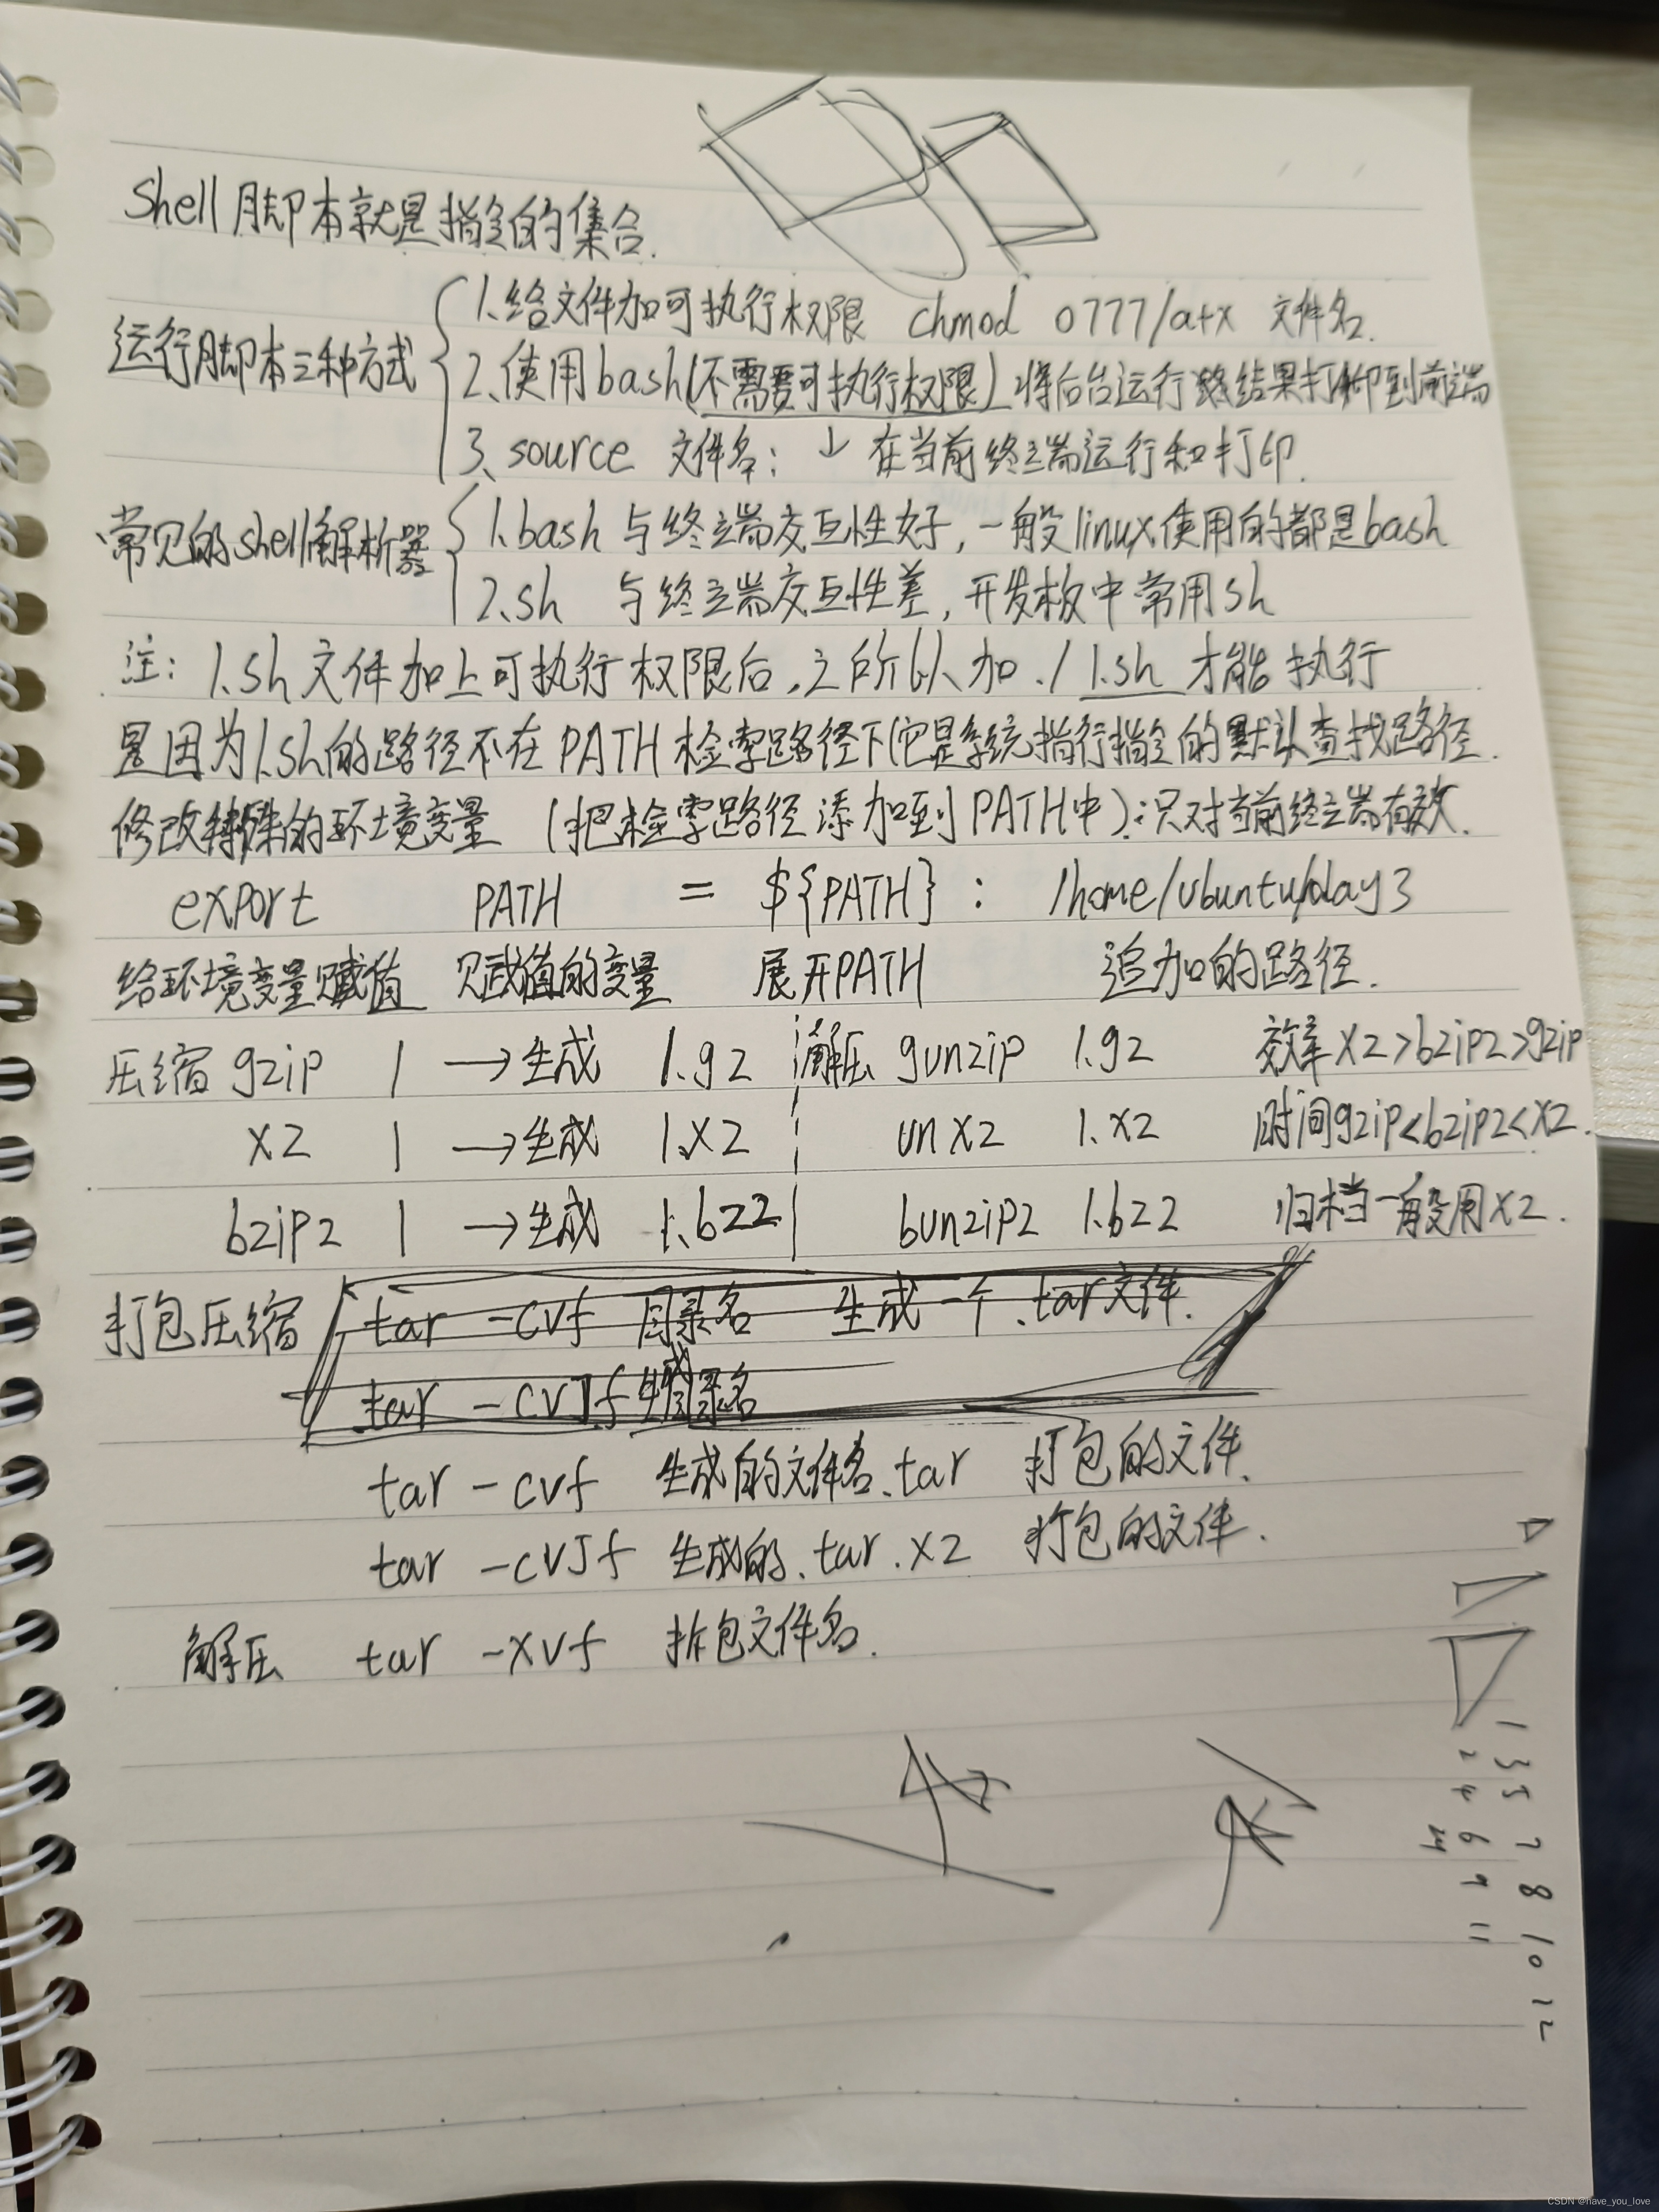 Shell脚本就是指定的集合.
运行脚本三种方式
1.给文件加可执行权限 chmod 0777/a+x 文件名.
2.使用bash(不需要可执行权限).将后台运行 结果打印到前端
3.source 文件名: ↓ 在当前终端运行和打印.
常见的shell解析器
1.bash 与终端交互性好,一般linux使用的都是bash
2.sh 与终端交互性差,开发板中常用sh
注: 1.sh文件加上可执行权限后,之所以加 ./1.sh 才能执行
是因为1.sh的路径不在PATH检索路径下(它是系统指行指定的默认查找路径.
修改特殊的环境变量 (把检索路径添加到PATH中):只对当前终端有效.
export PATH = ${PATH} : /home/ubuntu/day3
给环境变量赋值 赋值的变量 展开PATH 追加的路径.
压缩 gzip 1 →生成 1.gz 解压 gunzip 1.gz 效率xz>bzip2>gzip
xz 1 →生成 1.xz unxz 1.xz 时间gzip<bzip2<xz.
bzip2 1 →生成 1.bz2 bunzip2 1.bz2 归档一般用xz.
打包压缩 tar -cvf 目录名 生成一个.tar文件.
tar -cvJf 目录名
tar -cvf 生成的文件名.tar 打包的文件.
tar -cvJf 生成的.tar.xz 打包的文件.
解压 tar -xvf 拆包文件名.
1 3 5 7 8 10 12
2 4 6 9 11
CSDN @have_you_love